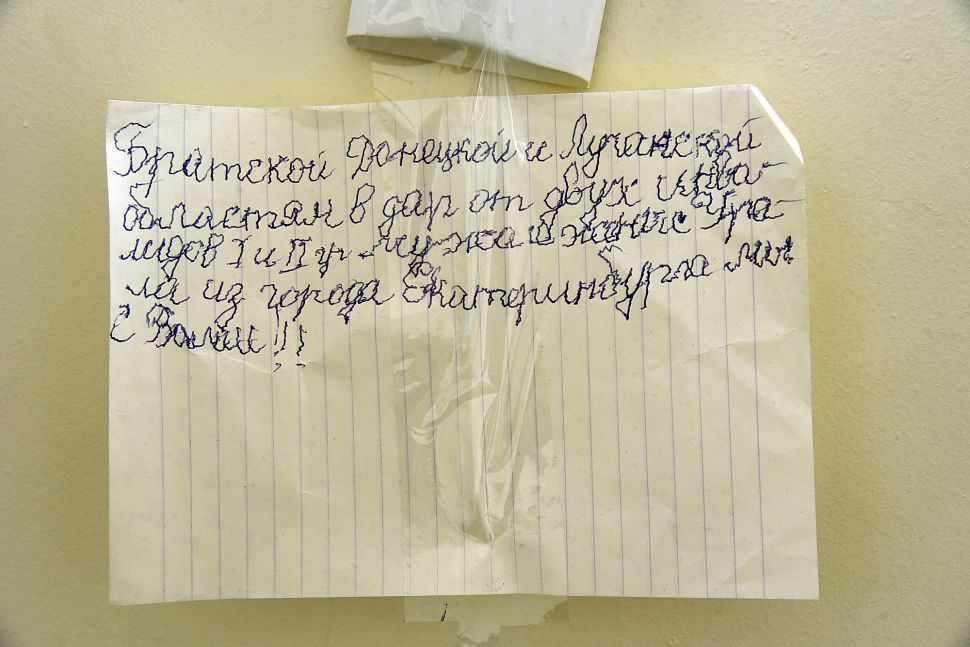 Братской Донецкой и Луганской
областям в дар от двух инва-
лидов I и II гр. мужа и жены с Ура-
ла из города Екатеринбурга мы
с Вами!!